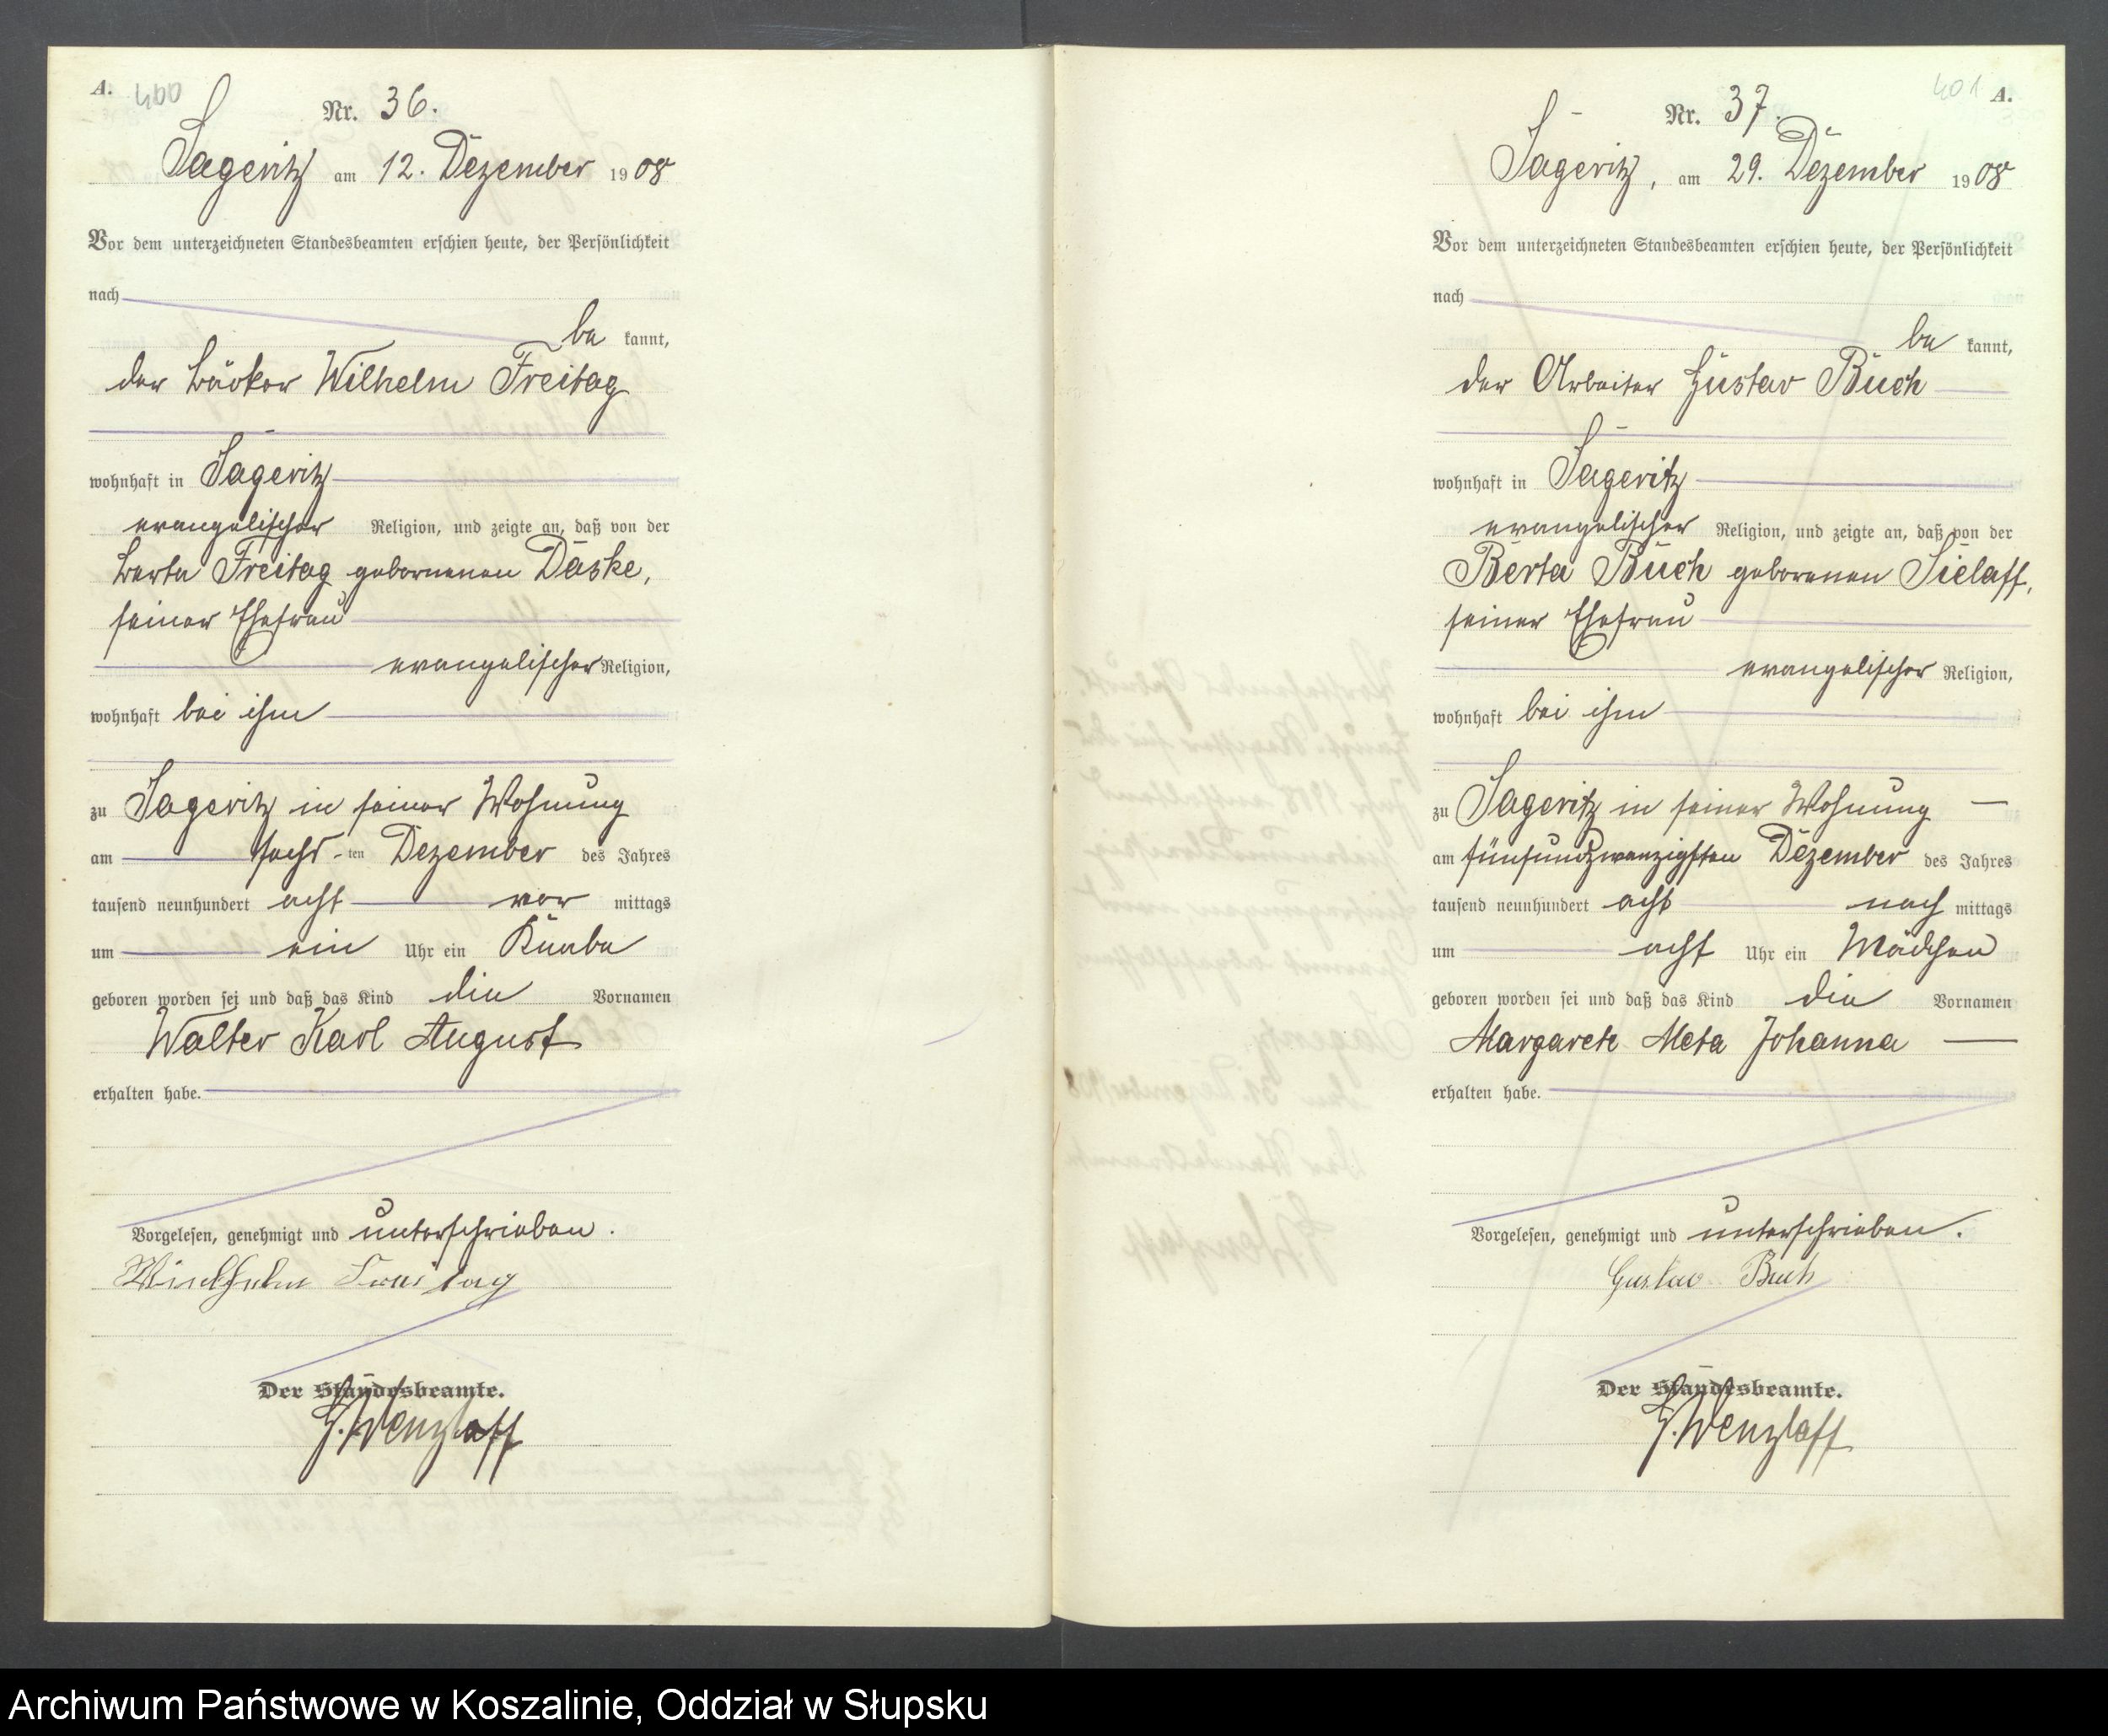 A.
400
Nr. 36.
Sageritz am 12. Dezember 1908
Vor dem unterzeichneten Standesbeamten erschien heute, der Persönlichkeit
nach
be kannt,
der Bäcker Wilhelm Freitag
wohnhaft in Sageritz
evangelischer Religion, und zeigte an, daß von der
Berta Freitag gebornenen Daske,
seiner Ehefrau
evangelischer Religion,
wohnhaft bei ihm
zu Sageritz in seiner Wohnung
am sechs-ten Dezember des Jahres
tausend neunhundert acht vor mittags
um ein Uhr ein Knabe
geboren worden sei und daß das Kind die Vornamen
Walter Karl August
erhalten habe.
Vorgelesen, genehmigt und unterschrieben.
Freitag
Der Standesbeamte.
G. Wenzlaff
401
A.
Nr. 37.
Sageritz, am 29. Dezember 1908
Vor dem unterzeichneten Standesbeamten erschien heute, der Persönlichkeit
nach
be kannt,
der Arbeiter Gustav Buch
wohnhaft in Sageritz
evangelischer Religion, und zeigte an, daß von der
Berta Buch geborenen Sielaff,
seiner Ehefrau
evangelischer Religion,
wohnhaft bei ihm
zu Sageritz in seiner Wohnung
am fünfundzwanzigsten Dezember des Jahres
tausend neunhundert acht nach mittags
um acht Uhr ein Mädchen
geboren worden sei und daß das Kind die Vornamen
Margarete Meta Johanna
erhalten habe.
Vorgelesen, genehmigt und unterschrieben.
Gustav Buch
Der Standesbeamte.
G. Wenzlaff
Archiwum Państwowe w Koszalinie, Oddział w Słupsku